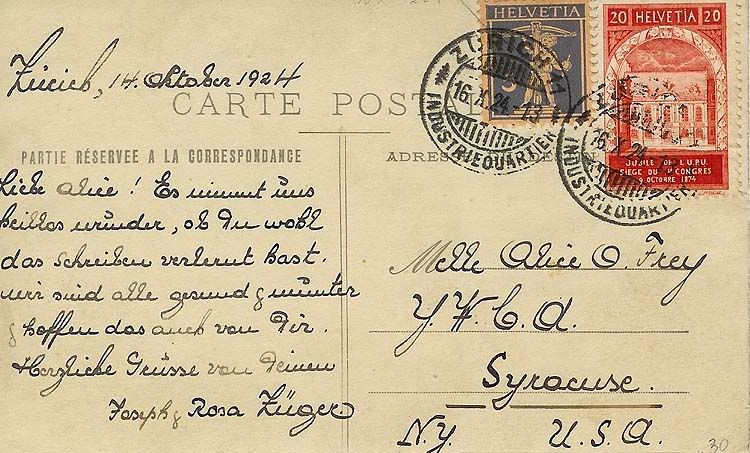 Zürich, 14. Oktober 1924
CARTE POSTA
PARTIE RÉSERVÉE A LA CORRESPONDANCE
ADRES
Liebe Alice! Es nimmt uns
heillos wunder, ob Du wohl
das Schreiben verlernt hast.
Wir sind alle gesund & munter
& hoffen das auch von Dir.
Herzliche Grüsse von Deinen
Joseph & Rosa Züger.
HELVETIA
5
20 HELVETIA 20
JUBILÉ DE L'U.P.U.
SIÈGE DU 1er CONGRES
9 OCTOBRE 1874
ZÜRICH 11
16.X.24.-13
INDUSTRIEQUARTIER
16.X.24
INDUSTRIEQUARTIER
Melle Alice O. Frey
Y. W. C. A.
Syracuse.
N.Y. U.S.A.
30